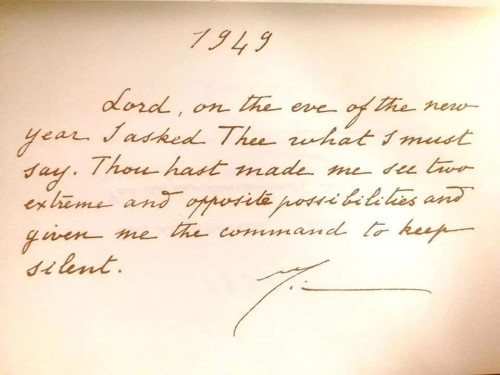 1949
Lord, on the eve of the new
year I asked Thee what I must
say. Thou hast made me see two
extreme and opposite possibilities and
given me the command to keep
silent.